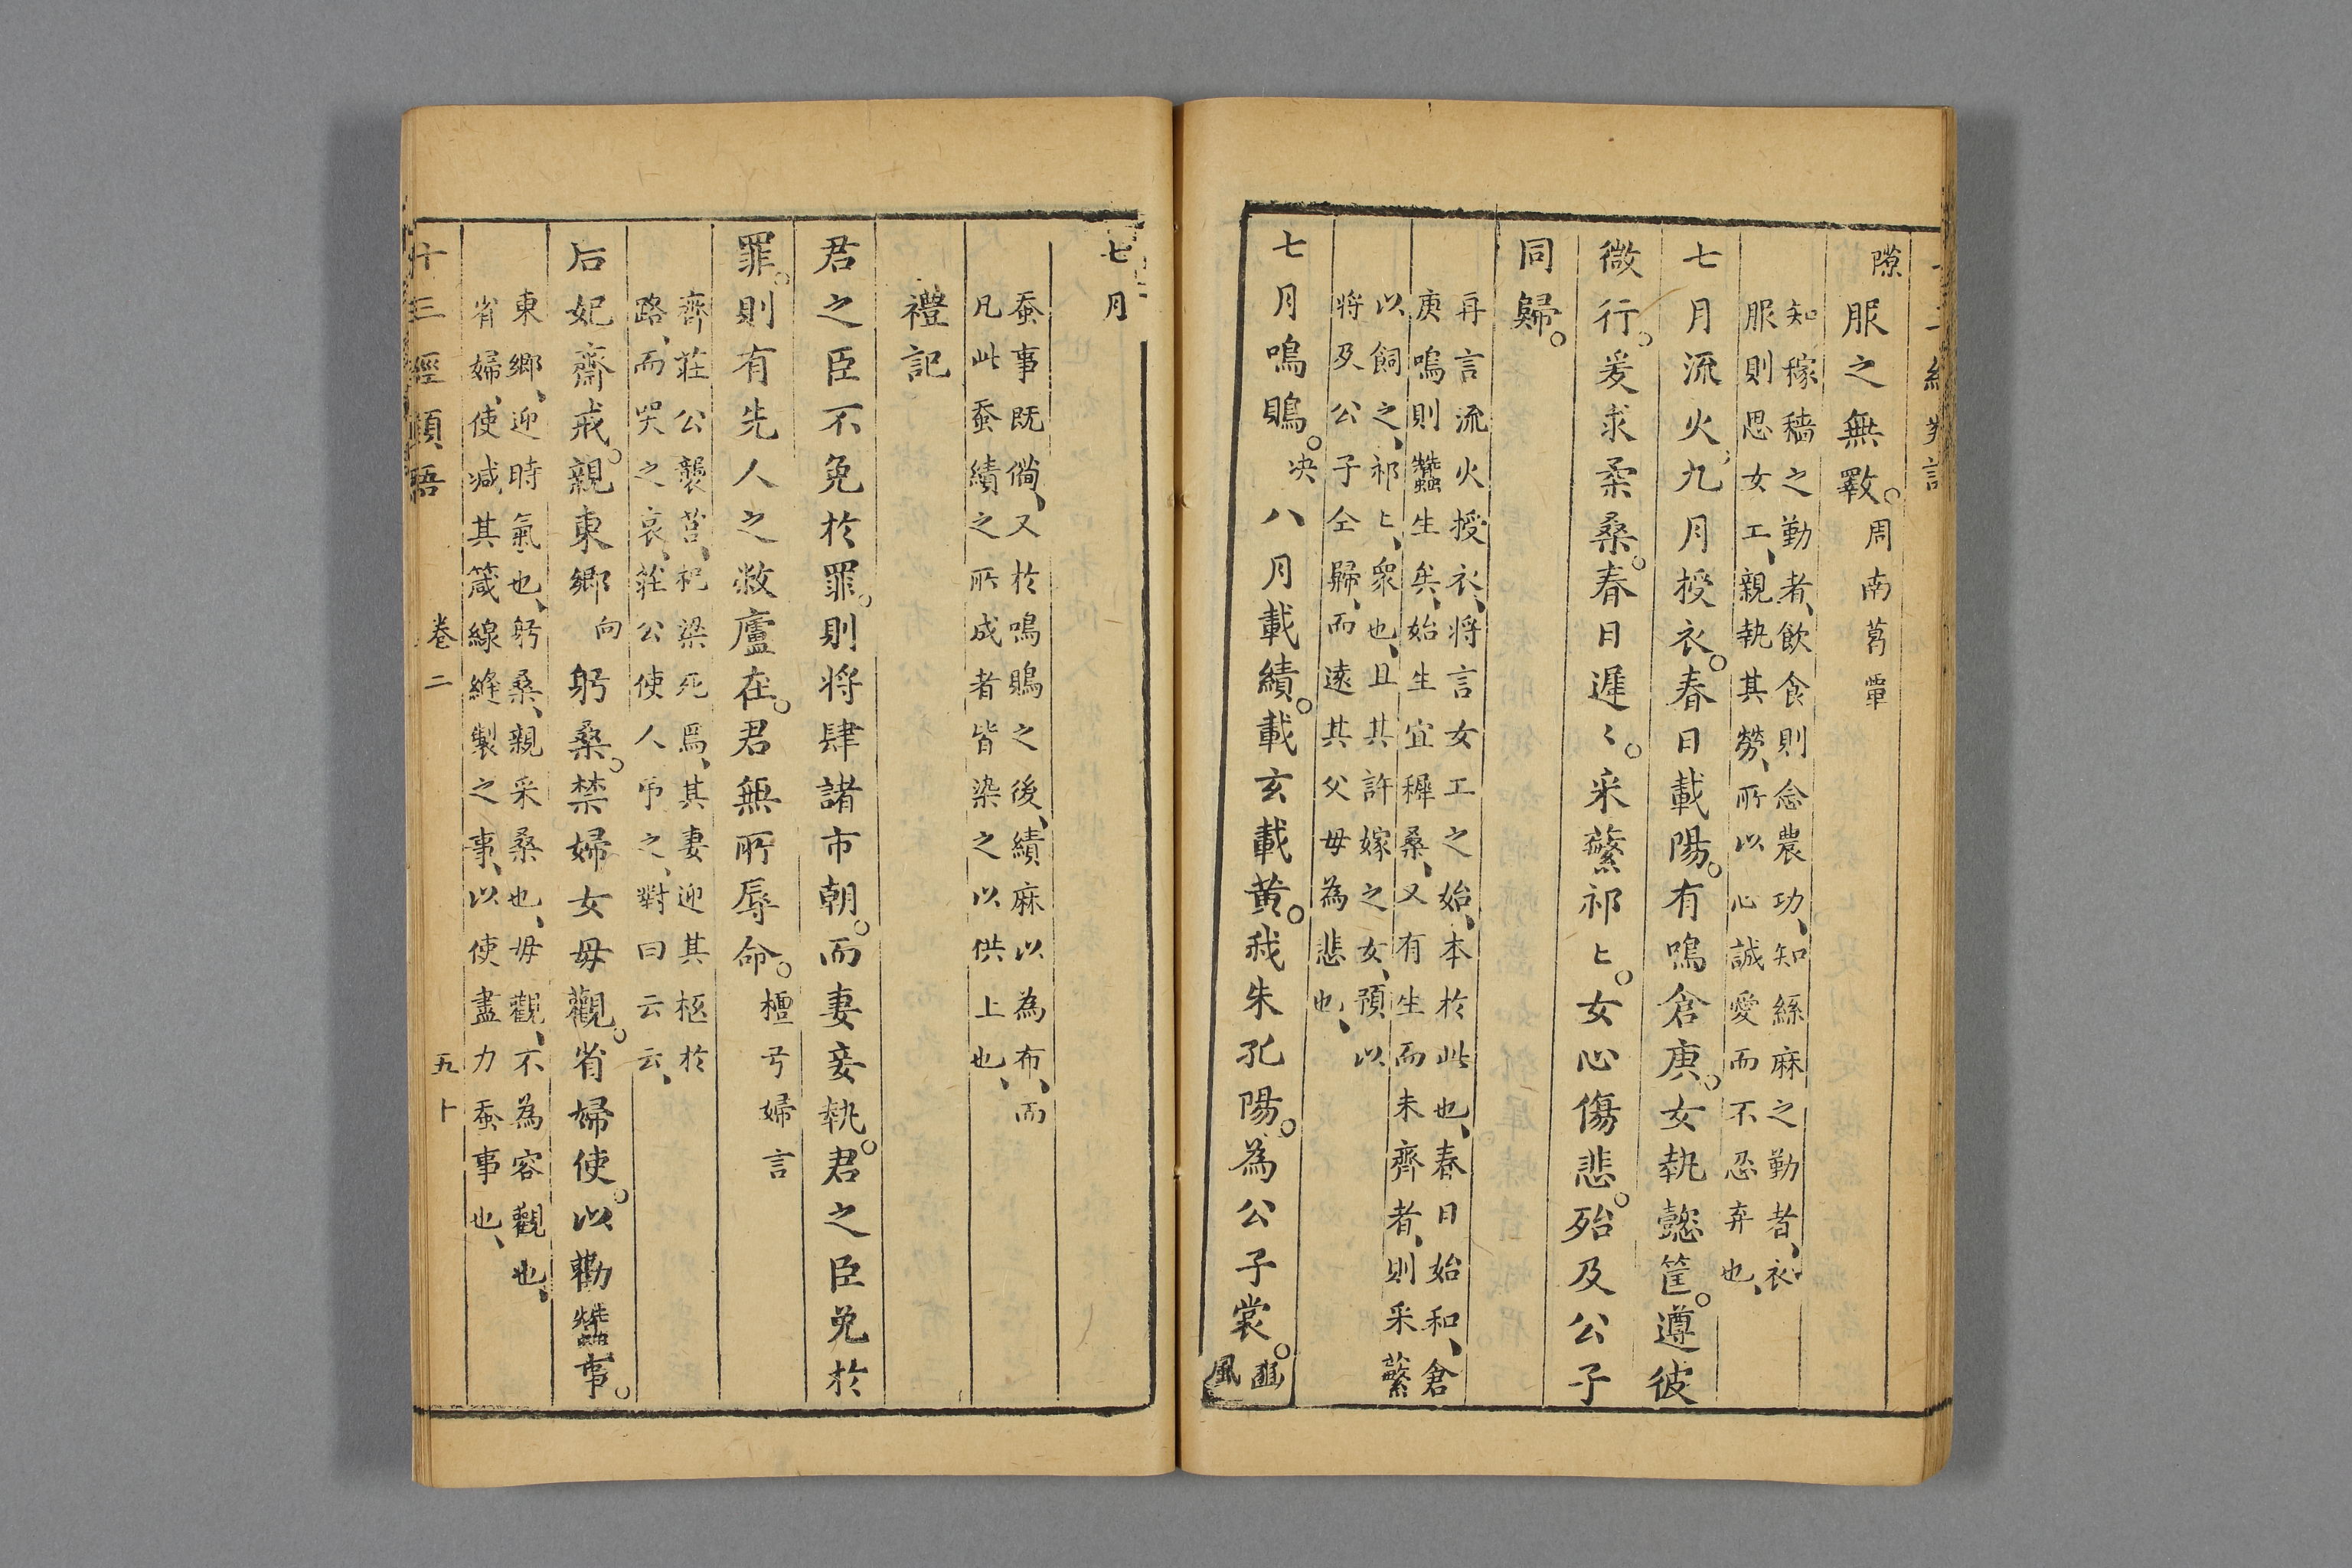 隙服之無斁周南葛覃
知稼穡之勤者飲食則念農功知絲麻之勤者衣
服則思女工親執其勞所以心誠愛而不忍弃也
七月流火九月授衣春日載陽有鳴倉庚女執懿筐遵彼
微行爰求柔桑春日遲〻采蘩祁〻女心傷悲殆及公子
同歸
再言流火授衣將言女工之始本於此也春日始和倉
庚鳴則蠶生矣始生宜穉桑又有生而未齊者則采蘩
以飼之祁〻衆也且其許嫁之女預以
将及公子仝歸而遠其父母為悲也
七月鳴鵙决八月載績載玄載黄我朱孔陽為公子裳豳風
七月
蚕事既僃又於鳴鵙之後績麻以為布而
凡此蚕績之所成者皆染之以供上也
禮記
君之臣不免於罪則将肆諸市朝而妻妾執君之臣免於
罪則有先人之敝廬在君無所辱命檀弓婦言
齊莊公襲莒杞梁死焉其妻迎其柩於
路而哭之哀莊公使人吊之對曰云云
后妃齋戒親東鄉向躬桑禁婦女毋觀省婦使以勸蠶事
東鄉迎時氣也躬桑親采桑也毋觀不為容觀也
省婦使减其箴線縫製之事以使盡力蚕事也
十三經類語 卷二 五十